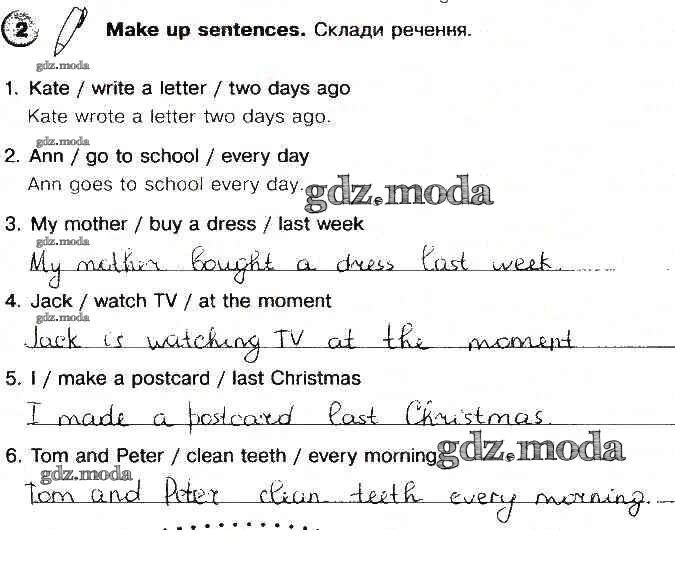 2 Make up sentences. Склади речення.
gdz.moda
1. Kate / write a letter / two days ago
Kate wrote a letter two days ago.
gdz.moda
2. Ann / go to school / every day
Ann goes to school every day.
gdz.moda
3. My mother / buy a dress / last week
gdz.moda
My mother bought a dress last week.
4. Jack / watch TV / at the moment
gdz.moda
Jack is watching TV at the moment
5. I / make a postcard / last Christmas
I made a postcard last Christmas.
6. Tom and Peter / clean teeth / every morning
gdz.moda
gdz.moda
Tom and Peter clean teeth every morning.